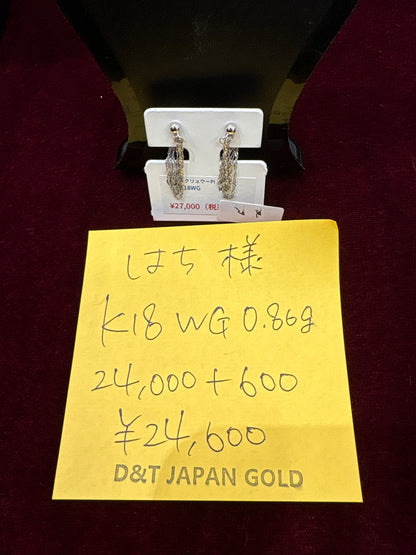 18WG
¥27,000 (税
はち 様
K18 WG 0.86g
24,000+600
¥24,600
D&T JAPAN GOLD